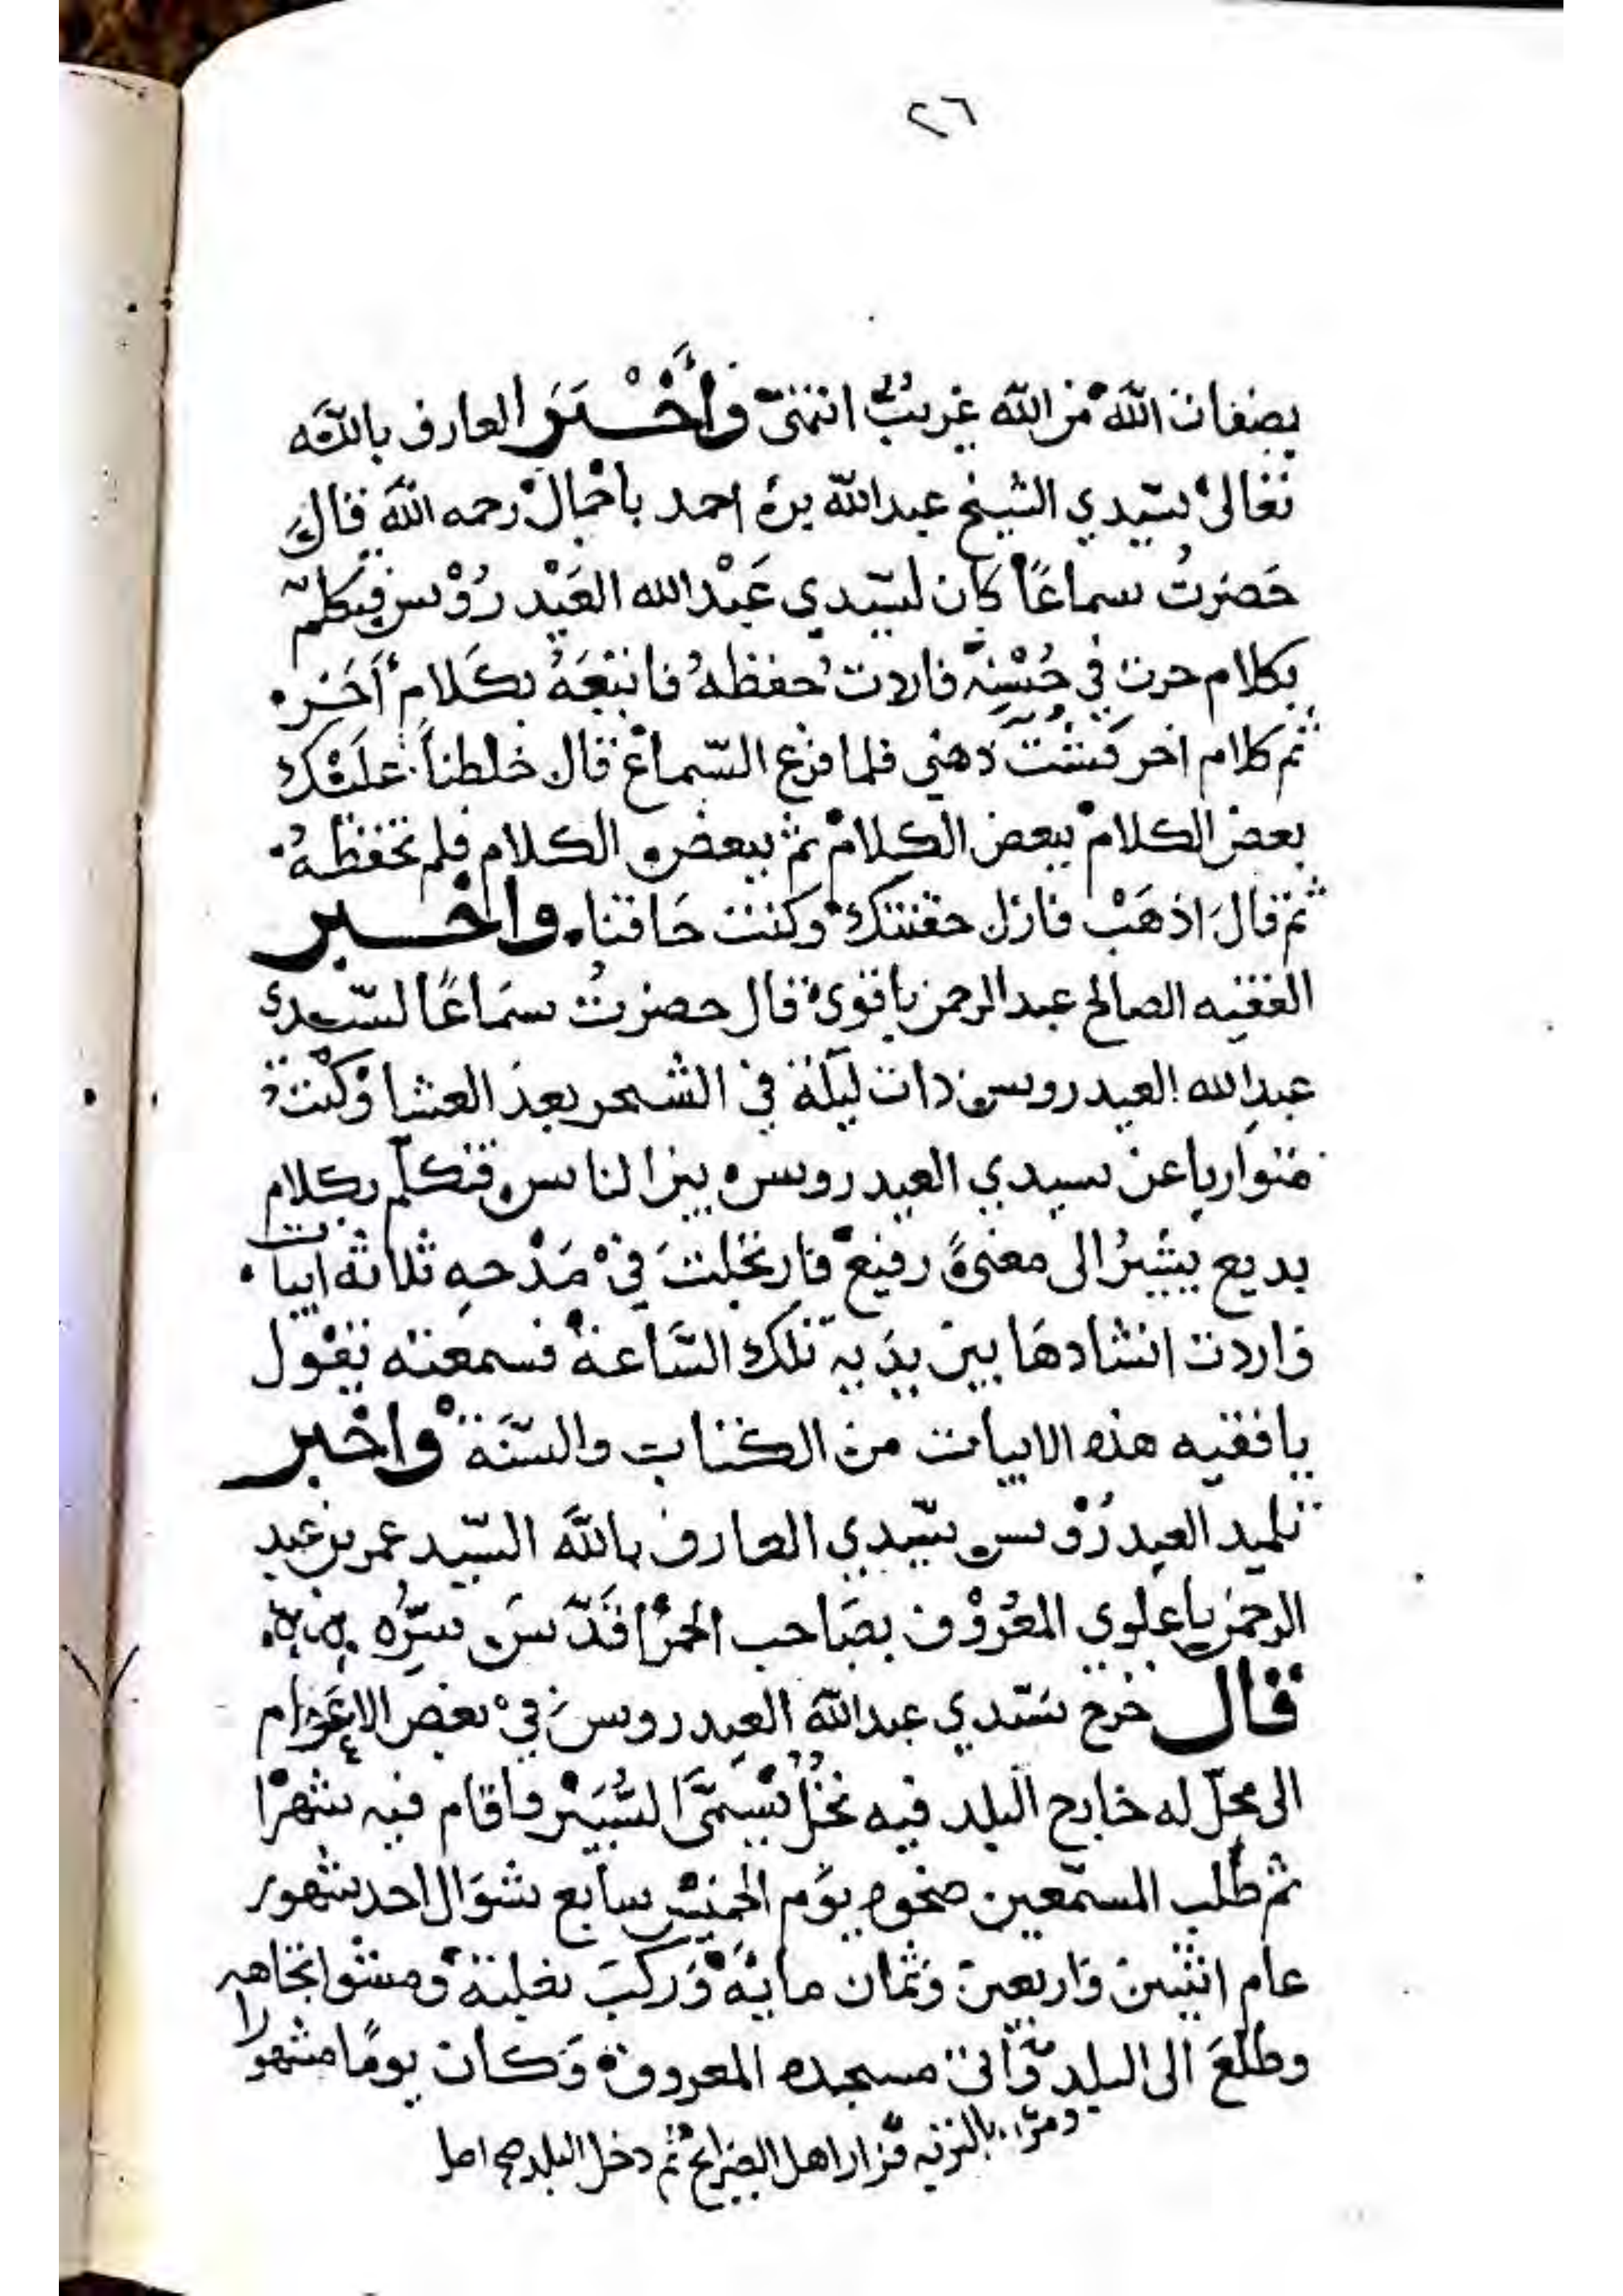 ٢٦
بصفات الله من الله غريب انتهى وأَخْبَرَ العارف بالله
تعالى سيّدي الشيخ عبدالله بن احمد باجمال رحمه الله قال
حَضرتُ سماعًا كان لسيّدي عَبْدالله العَيْدرُوْس فتكلّم
بكلام حرت في حُسْنِه فاردت حفظهُ فاتبَعَهُ بكَلام أَخَر
ثم كلام اخر فشتّت ذهني فلما فرع السّماع قال خلطنا عليْك
بعض الكلام ببعض الكلام ثم ببعض الكلام فلم تحفظهُ
ثم قال اذهَبْ فازل حقنتك وكنت حَاقنا واخبر
الفقيه الصالح عبدالرحمن باقوي قال حضرتُ سَماعًا لسّيدي
عبدالله العيدروس ذات ليلة في الشحر بعد العشا وكنْت
متواريا عن سيدي العيدروس بين الناس فتكلّم بكلام
بديع يشيرُ الى معنىً رفيع فارتجلت في مَدْحهِ ثلاثه ابيات
واردت انشادهَا بين يدَيه تلك السَّاعة فسمعته يقول
يافقيه هذه الابيات من الكتاب والسّنَة واخبر
تلميد العيدرُوْس سّيدي العارف بالله السّيد عمر بن عبد
الرحمن باعلوي المعْرُوْف بصَاحب الحمْرا قَدّسَ سِرُّه
قال خرج سَيّدي عبدالله العيدروس في بعض الاعَوام
الى محلّ له خارج البلد فيه نخلٌ يُسَمَّى السُّبَيْر فاقام فيه شهرًا
ثم طلب المسمّعين ضحوه يوم الخميْس سابع شوَال احد شهور
عام اثنين واربعين وثمان مايَه ورَكبَ بغلته ومشوا تجاهه
وطلَعَ الى البلد وَأتى مسجده المعروف وَكان يومًا مشهورا
ومرّ بالتربه فزار اهل الضرايح ثم دخل البلد صح اصل